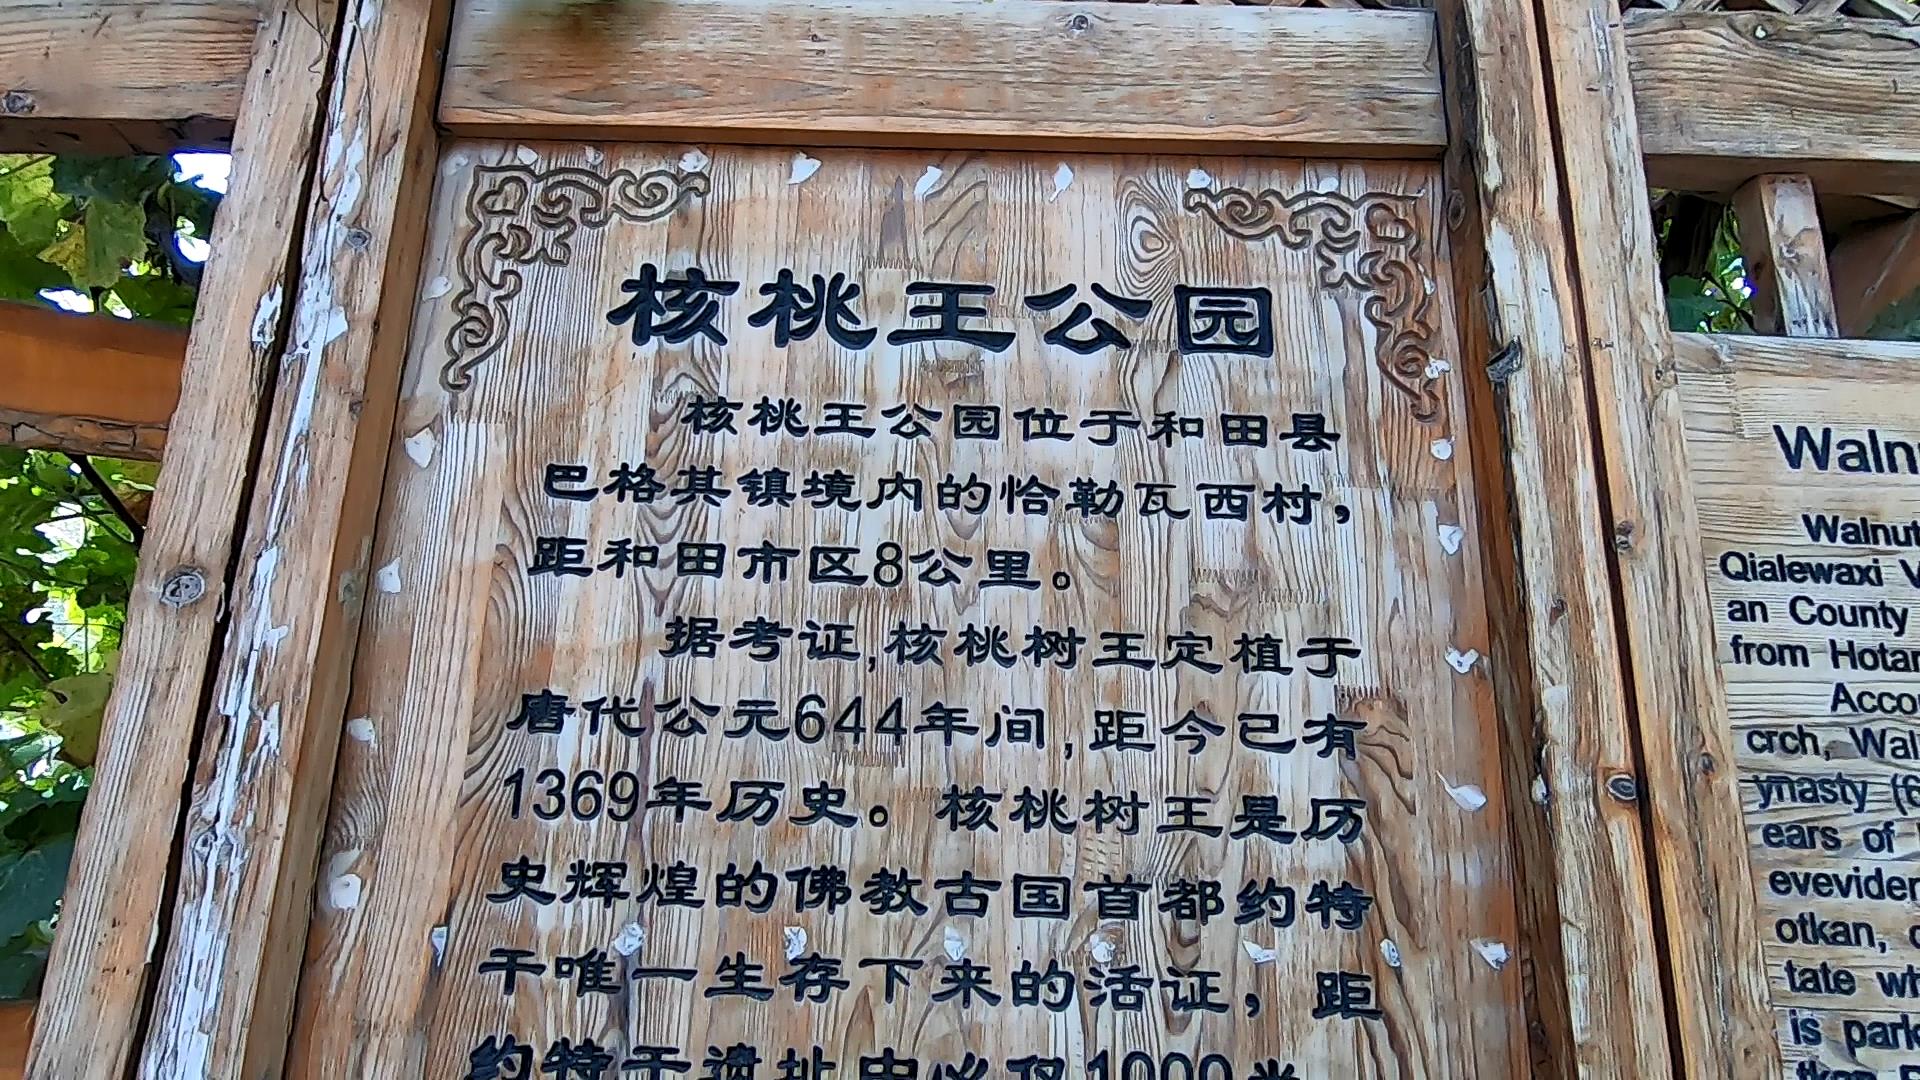 核桃王公园
核桃王公园位于和田县
巴格其镇境内的恰勒瓦西村，
距和田市区8公里。
据考证,核桃树王定植于
唐代公元644年间,距今已有
1369年历史。核桃树王是历
史辉煌的佛教古国首都约特
干唯一生存下来的活证，距
约特干遗址中心仅1000米
Waln
Walnut
Qialewaxi V
an County
from Hotan
Acco
crch, Wal
ynasty (6
ears of
eveviden
otkan, c
tate wh
is park
tkan